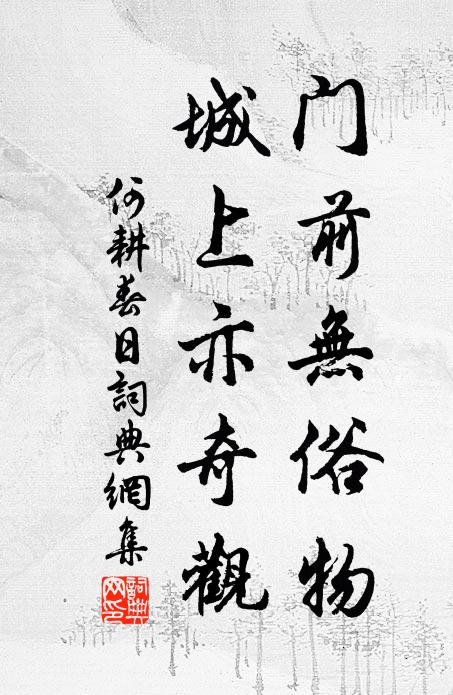 門前無俗物
城上亦奇觀
何耕春日詞典網集
詞典網印